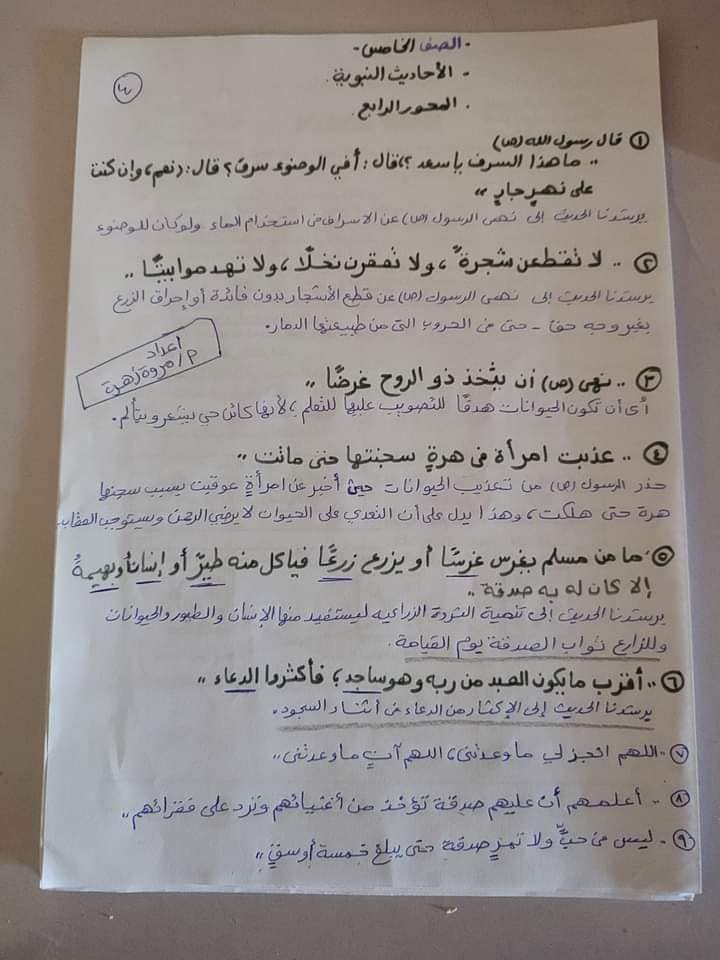 - الصف الخامس -
- الأحاديث النبوية.
. المحور الرابع.
① قال رسول الله (ص)
.. ما هذا السرف يا سعد ؟، قال: أفي الوضوء سرف؟ قال: (نعم، وإن كنت
على نهرٍ جارٍ ,,
يرشدنا الحديث إلى نهى الرسول (ص) عن الاسراف فى استخدام الماء ولو كان للوضوء
② .. لا تقطعن شجرةً، ولا تعقرن نخلًا، ولا تهدموا بيتًا ,,
يرشدنا الحديث إلى نهى الرسول (ص) عن قطع الأشجار بدون فائدة أو إحراق الزرع
بغير وجه حق - حتى فى الحروب التى من طبيعتها الدمار.
أعداد
م/ مروة زهرة
③ .. نهى (ص) أن يتخذ ذو الروح غرضًا ,,
أى أن تكون الحيوانات هدفًا للتصويب عليها للتعلم، لأنها كائن حي يشعر ويتألم.
④ .. عذبت امرأة فى هرةٍ سجنتها حتى ماتت ,,
حذر الرسول (ص) من تعذيب الحيوانات حين أخبر عن امرأةٍ عوقبت بسبب سجنها
هرة حتى هلكت، وهذا يدل على أن التعدي على الحيوان لا يرضي الرحمن ويستوجب العقاب
⑤ ما من مسلم يغرس غرسًا أو يزرع زرعًا فيأكل منه طيرٌ أو إنسان أو بهيمةُ
إلا كان له به صدقة ,,
يرشدنا الحديث إلى تنمية الثروة الزراعيه ليستفيد منها الإنسان والطيور والحيوانات
وللزارع ثواب الصدقة يوم القيامة.
⑥ .. أقرب ما يكون العبد من ربه وهو ساجد؛ فأكثروا الدعاء ,,
يرشدنا الحديث إلى الإكثار من الدعاء فى أثناء السجود.
⑦ - اللهم انجز لي ما وعدتنى، اللهم آتِ ما وعدتنى ,,
⑧ .. أعلمهم أن عليهم صدقة تؤخذ من أغنيائهم وترد على فقرائهم ,,
⑨ - ليس فى حبٍّ ولا تمرٍ صدقة حتى يبلغ خمسة أوسقٍ ,,